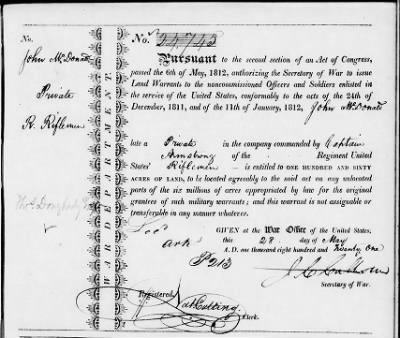 No.
No. 24,743
John McDonald
Private
R. Riflemen
WAR DEPARTMENT.
Pursuant to the second section of an Act of Congress,
passed the 6th of May, 1812, authorizing the Secretary of War to issue
Land Warrants to the noncommissioned Officers and Soldiers enlisted
in the service of the United States, conformably to the acts of the 24th of
December, 1811, and of the 11th of January, 1812, John McDonald
late a Private in the company commanded by Captain
Armstrong of the Regiment United
States' Riflemen — is entitled to ONE HUNDRED AND SIXTY
ACRES OF LAND, to be located agreeably to the said act on any unlocated
parts of the six millions of acres appropriated by law for the original
grantees of such military warrants; and this warrant is not assignable or
transferable in any manner whatever.
GIVEN at the War Office of the United States,
this 28. day of May
A. D. one thousand eight hundred and Twenty One
Ark
P 213
J C Calhoun
Secretary of War.
Registered, Nat Cutting
Clerk.